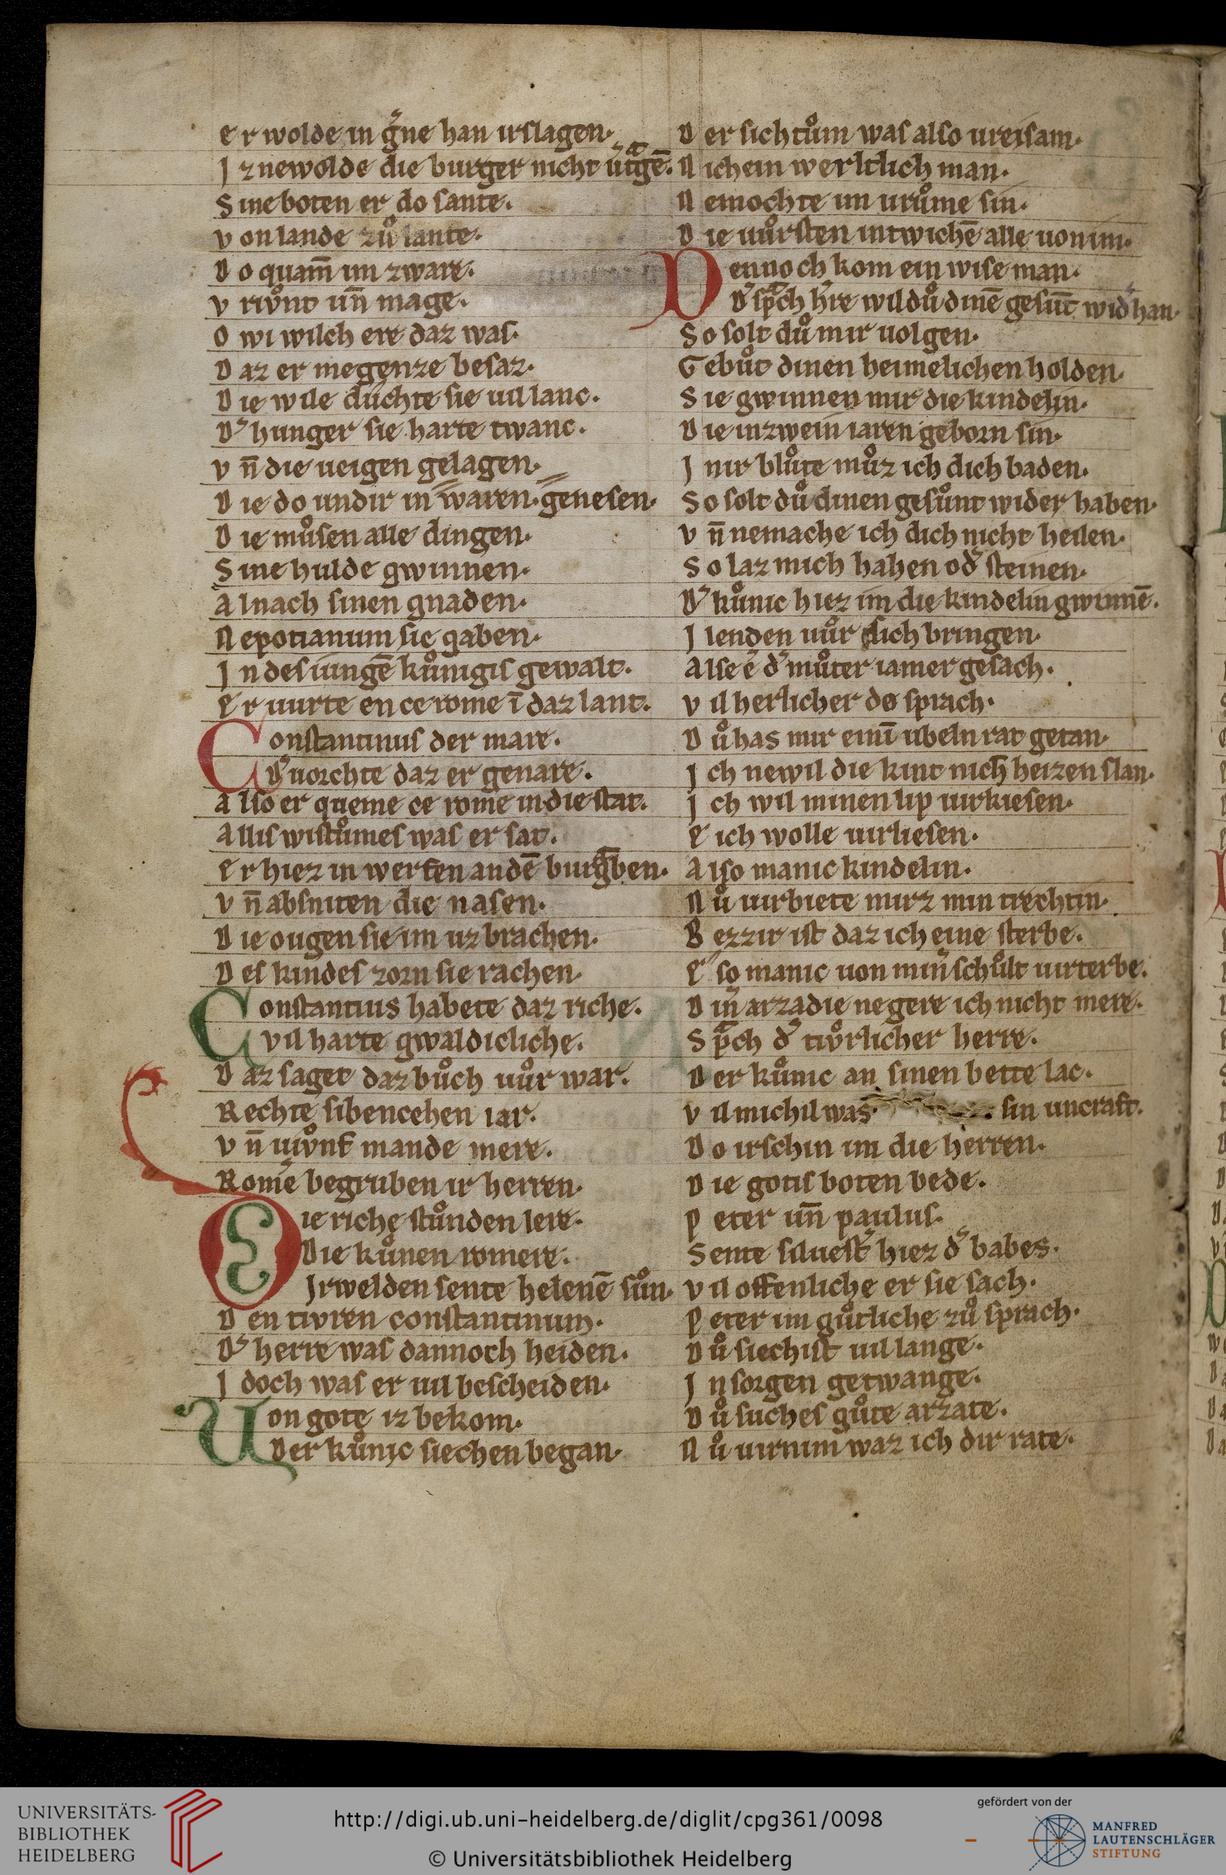 er wolde in g̾ne han irslagen·
Iz newolde die burger nicht v̾tgē·
Sine boten er do sante·
von lande zů lante·
Do quam̄ im zware·
vrivnt vn̄ mage·
O wi wilch ere daz was·
Daz er megenze besaz·
Die wile duchte sie uil lanc·
D̾ hunger sie harte twanc·
vn̄ die ueigen gelagen·
Die do undir in waren·genesen·
Die můsen alle dingen·
Sine hulde gwinnen·
al nach sinen gnaden·
Nepotianum sie gaben·
In des iungē kůnigis gewalt·
er uurte en ce rome ī daz lant·
Constantinus der mare·
D̾ uorchte daz er genare·
also er queme ce rome in die stat·
allis wistůmes was er sat·
er hiez in werfen an dē burgᵃben·
vn̄ absniten die nasen·
Die ougen sie im uz brachen·
Des kindes zorn sie rachen·
Constantius habete daz riche·
vil harte gwaldicliche·
Daz saget daz bůch uůr war·
Rechte sibencehen iar·
vn̄ uivnf mande mere·
Rome̾ begruben ir herren·
Die riche stůnden lere·
Die kůnen romere·
Irwelden sente helenē sůn·
Den tivren constantinum·
D̾ herre was dannoch heiden·
Idoch was er uil bescheiden·
Uon gote iz bekom·
Der kůnic siechen began·
Der sichtům was also ureisam·
Nichein werltlich man·
Nemochte im urůme sin·
Die uůrsten intwichē alle uon im·
Dennoch kom ein wise man·
D̾ spᵃch h̾re wil dů dinē gesūt wid̾ han·
So solt dů mir uolgen·
Gebůt dinen heimelichen holden·
Sie gwinnen mir die kindelin·
Die in zwein iaren geborn sin·
In ir blůte můz ich dich baden·
So solt dů dinen gesůnt wider haben·
vn̄ nemache ich dich nicht heilen·
So laz mich hahen od̾ steinen·
D̾ kůnic hiez im die kindelin gwinnē·
Ilenden uůr sich bringen·
Alse e͛ d̾ můter iamer gesach·
vil herlicher do sprach·
Dů has mir einī ubeln rat getan·
Ich newil die kint nich heizen slan·
Ich wil minen lip uirkiesen·
e ich wolle uirliesen·
Also manic kindelin·
Nů uirbiete mirz min trechtin·
Bezzir ist daz ich eine sterbe·
e so manic uon min̾ schůlt uirterbe·
Din̾ arzadie negere ich nicht mere·
Spᵃch d̾ tivrlicher herre·
Der kůnic an sinen bette lac·
vil michil was· sin uncraft·
Do irschin im die herren·
Die gotis boten bede·
Peter un̄ paulus·
Sente siluest̾ hiez d̾ babes·
vil offenliche er sie sach·
Peter im gůtliche zů sprach·
Dů siechist uil lange·
In sorgen getwange·
Dů suches gůte arzate·
Nů uirnim waz ich dir rate·
UNIVERSITÄTS-
BIBLIOTHEK
HEIDELBERG
http://digi.ub.uni-heidelberg.de/diglit/cpg361/0098
© Universitätsbibliothek Heidelberg
gefördert von der
MANFRED
LAUTENSCHLÄGER
STIFTUNG